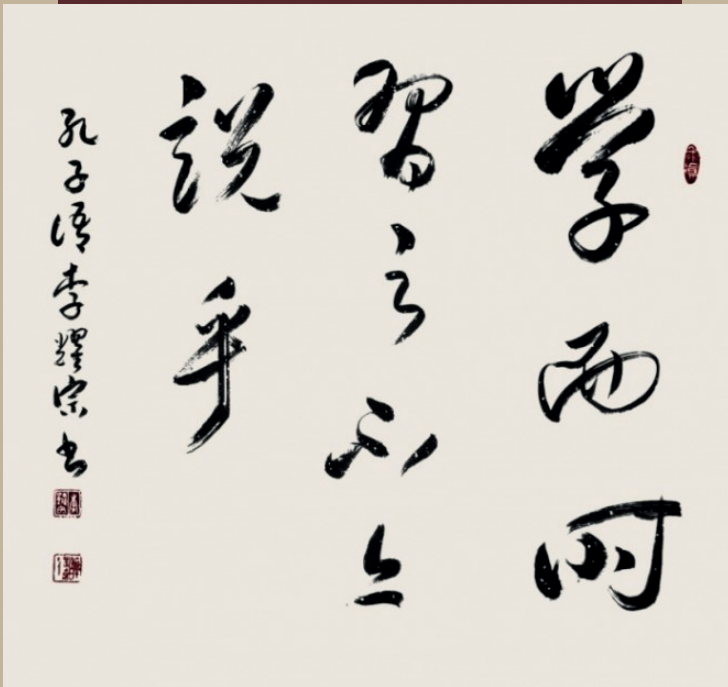 學而时
習之不亦
説乎
孔子语李耀宗书